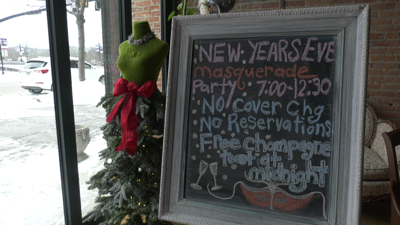 NEW YEARS EVE
masquerade
Party 7:00-12:30
No Cover Chg
No Reservations
Free Champagne
Toast at
midnight